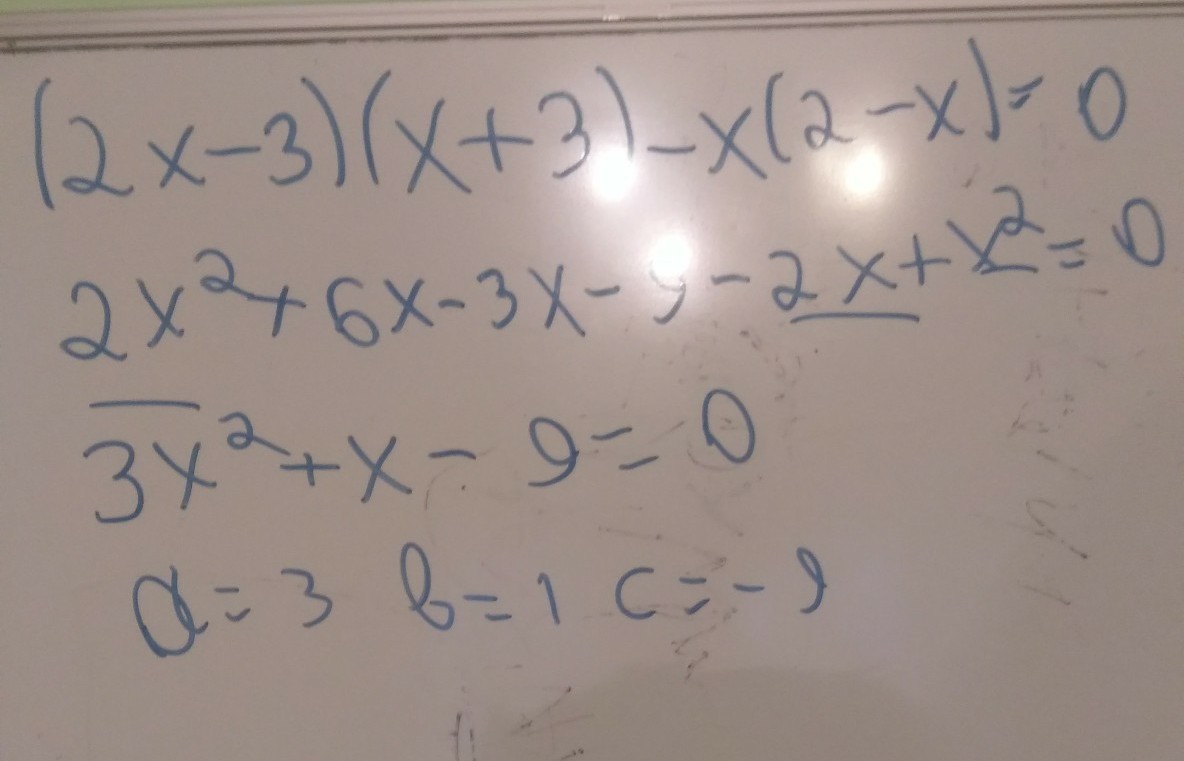 (2x-3)(x+3)-x(2-x)=0
2x²+6x-3x-9-2x+x²=0
3x²+x-9=0
a=3 b=1 c=-9